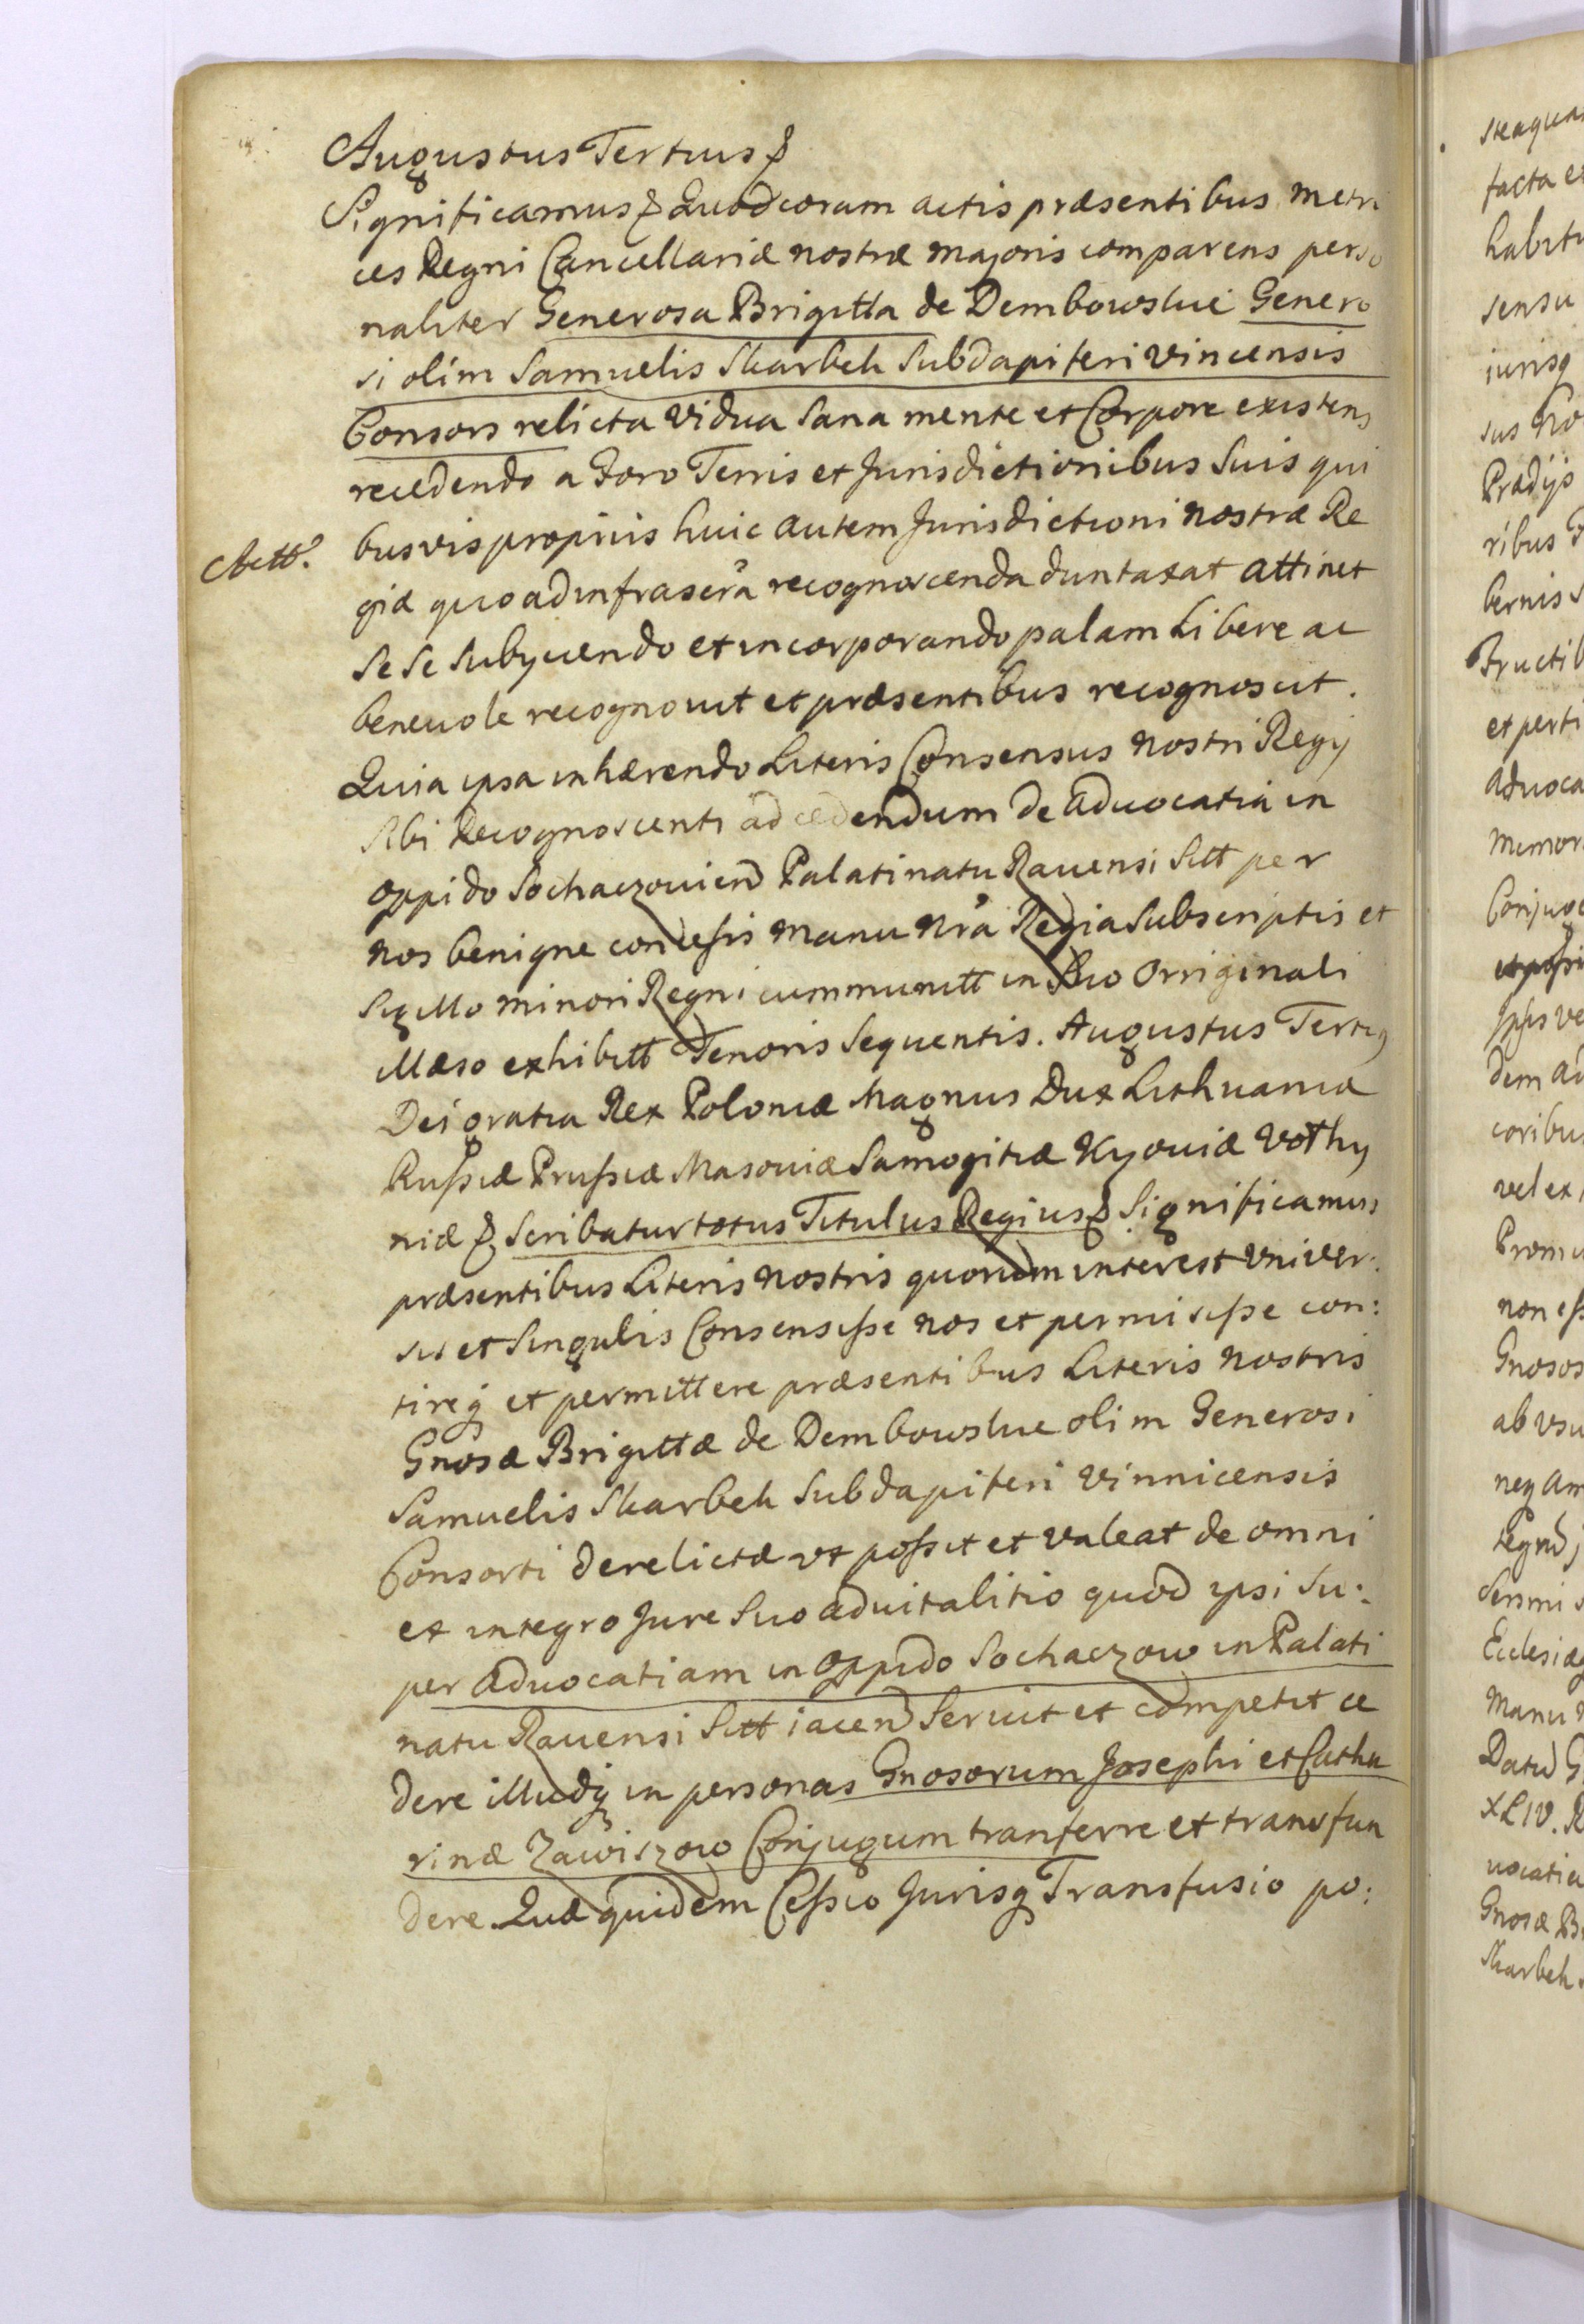 Augustus Tertius &
Significamus & Quod coram actis præsentibus Metri
ces Regni Cancellariæ nostræ majoris comparens perso
naliter Generosa Brigitta de Dembowskie Genero
si olim Samuelis Skarbek Subdapiferi Vincensis
Consors relicta Vidua Sana mente et Corpore existens
recedendo a Foro Terris et Jurisdictionibus Suis qui
busvis propriis huic autem Jurisdictioni nostræ Re
Actt.
giæ quo ad infrascra recognoscenda duntaxat attinet
Se Se Subyciendo et incorporando palam Libere ac
beneuole recognouit et præsentibus recognoscit.
Quia ipsa inhærendo Literis Consensus nostri Regij
Sibi Recognoscenti ad cedendum de aduocatia in
oppido Sochaczouien Palatinatu Rauensi Sitt per
nos benigne concessis manu nra Regia Subscriptis et
Sigillo minori Regni cummunitt in Suo Originali
illæso exhibitt Tenoris Sequentis. Augustus Tertig
Dei gratia Rex Poloniæ Magnus Dux Lithuaniæ
Russiæ Prussiæ Masouiæ Samogitiæ Kyouiæ Volhy
niæ & Scribatur totus Titulus Regius & Significamus
præsentibus Literis nostris quorum interest Vniver:
sis et Singulis Consensisse nos et permisisse con:
tireq et permittere præsentibus Literis nostris
Gnosæ Brigittæ de Dembowskie olim Generosi
Samuelis Skarbek Subdapiferi Vinnicensis
Consorti derelictæ vt possit et valeat de omni
et integro Jure Suo aduitalitio quod ipsi Su:
per aduocatiam in oppido Sochaczow in Palati
natu Rauensi Sitt iacen Seruit et competit ce
dere illudq in personas Gnosorum Josephi et Catha
rinæ Zawiszow Conjugum tranferre et transfun
dere. Quæ quidem Cessio Jurisq Transfusio po: